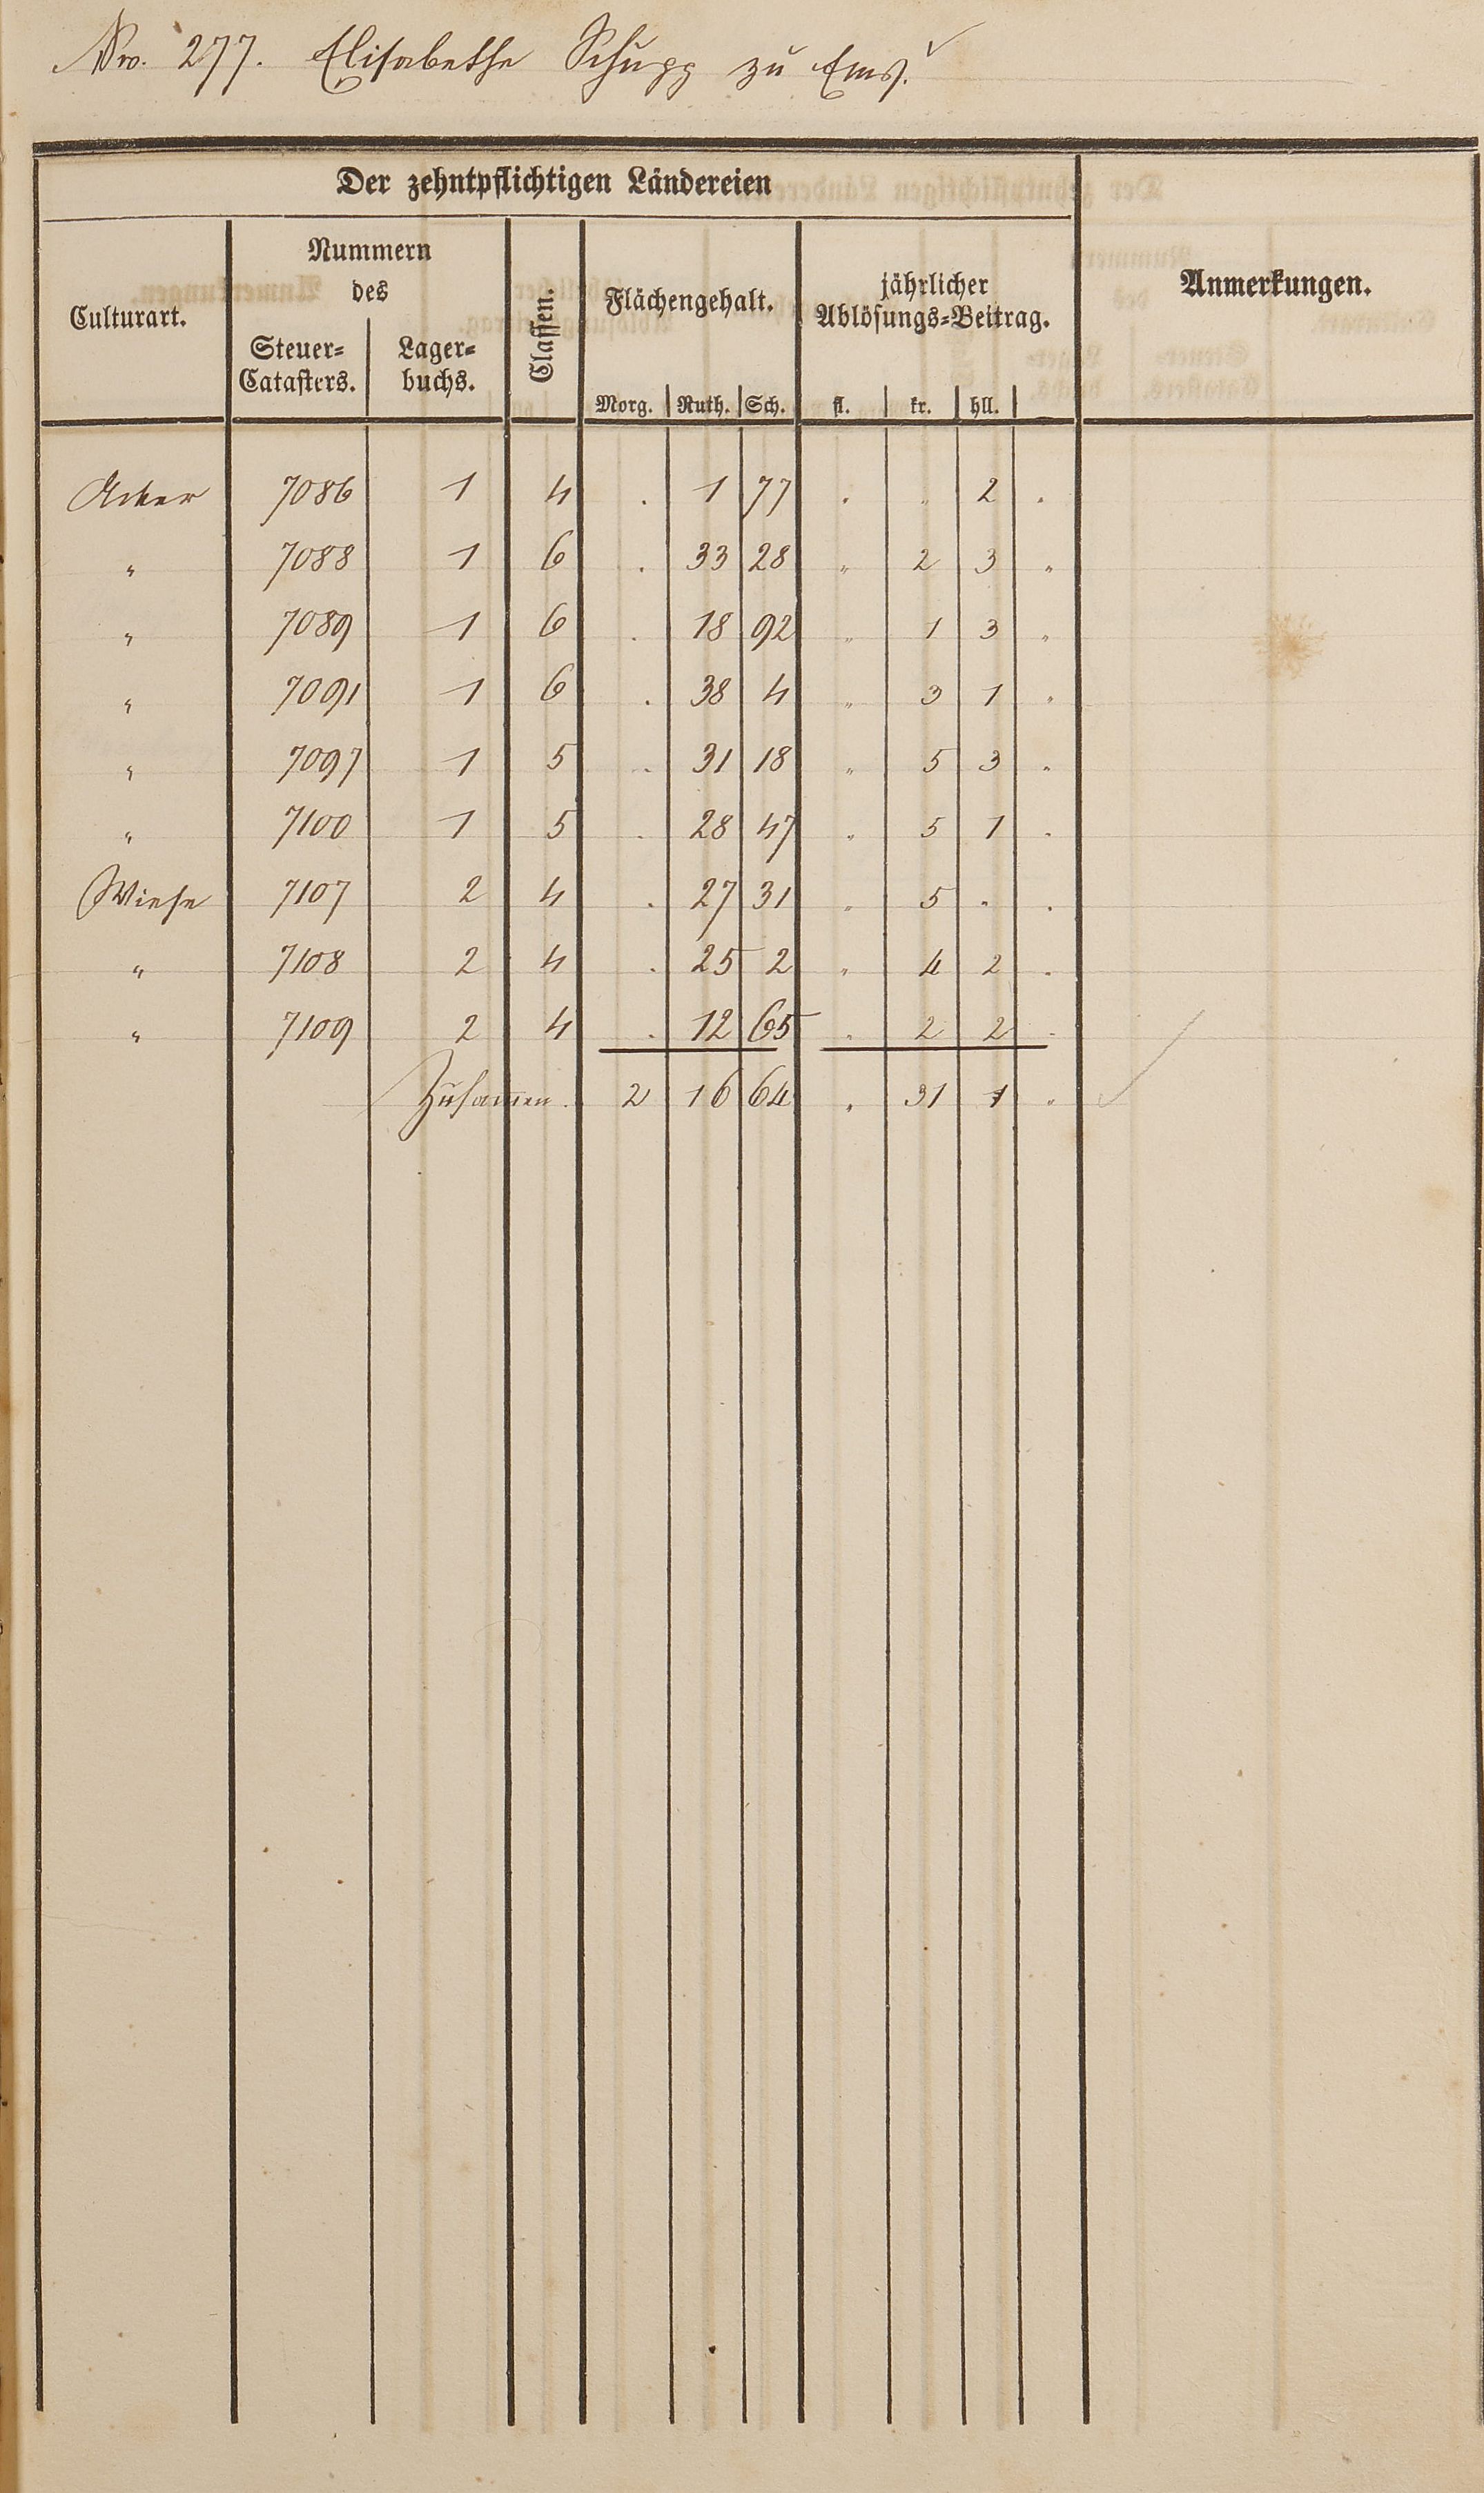 Nro. 277. Elisabethe Schupp zu Ems.
Der zehntpflichtigen Ländereien
Culturart.
Nummern
des
Steuer=
Catasters.
Lager=
buchs.
Classen.
Flächengehalt.
Morg. Ruth. Sch.
jährlicher
Ablösungs=Beitrag.
fl. kr. hll.
Anmerkungen.
Acker 7086 1 4 . 1 77 . „ 2 .
„ 7088 1 6 . 33 28 „ 2 3 „
„ 7089 1 6 . 18 92 „ 1 3 „
„ 7091 1 6 . 38 4 „ 3 1 „
„ 7097 1 5 . 31 18 „ 5 3 .
„ 7100 1 5 . 28 47 „ 5 1 .
Wiese 7107 2 4 . 27 31 „ 5 . .
„ 7108 2 4 . 25 2 „ 4 2 .
„ 7109 2 4 . 12 65 „ 2 2 .
Zusamen. 2 16 64 „ 31 1 „